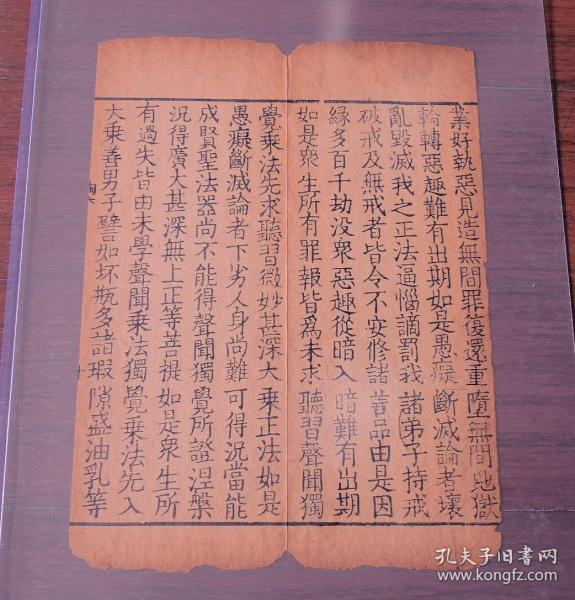 業好執惡見造無間罪復還重墮無間地獄
輪轉惡趣難有出期如是愚癡斷滅論者壞
亂毀滅我之正法逼惱謫罰我諸弟子持戒
破戒及無戒者皆令不安修諸善品由是因
緣多百千劫沒衆惡趣從暗入暗難有出期
如是衆生所有罪報皆爲未求聽習聲聞獨
覺乘法先求聽習微妙甚深大乘正法如是
愚癡斷滅論者下劣人身尚難可得況當能
成賢聖法器尚不能得聲聞獨覺所證涅槃
況得廣大甚深無上正等菩提如是衆生所
有過失皆由未學聲聞乘法獨覺乘法先入
大乘善男子譬如坏瓶多諸瑕隙盛油乳等
孔夫子旧书网
www.kongfz.com